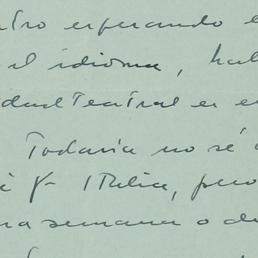 esperando
el idioma, hab
dad Teatral en e
Todavía no sé
Italia, pero
semana o d